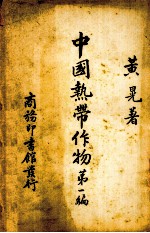 黃晃著
中國熱帶作物第一編
商務印書館發行